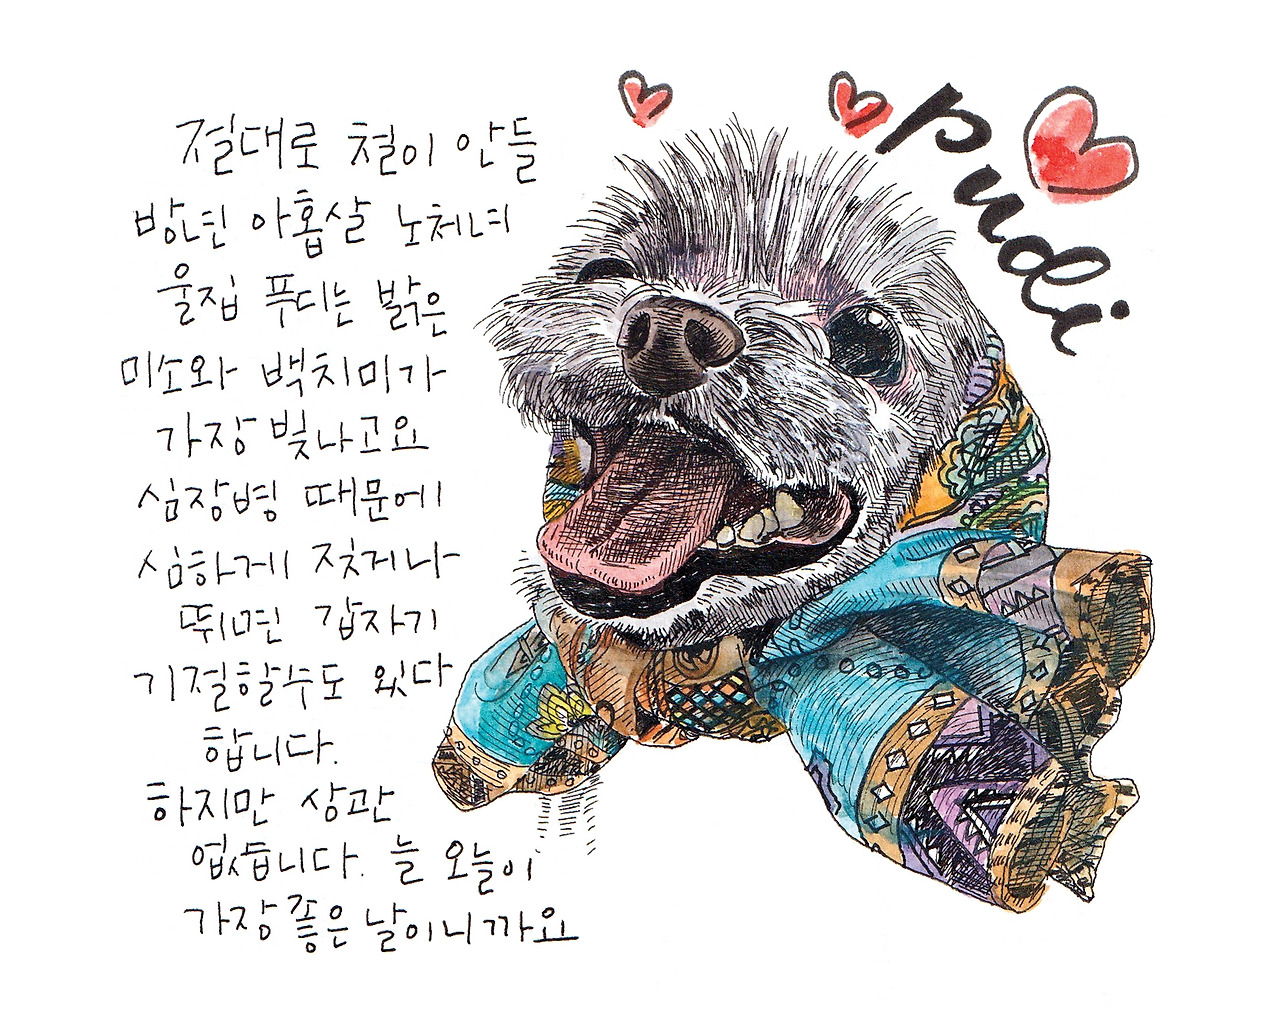 절대로 철이 안들
방년 아홉살 노처녀
울집 푸디는 밝은
미소와 백치미가
가장 빛나고요
심장병 때문에
심하게 짖거나
뛰면 갑자기
기절할수도 있다
합니다.
하지만 상관
없습니다. 늘 오늘이
가장 좋은 날이니까요
pudi